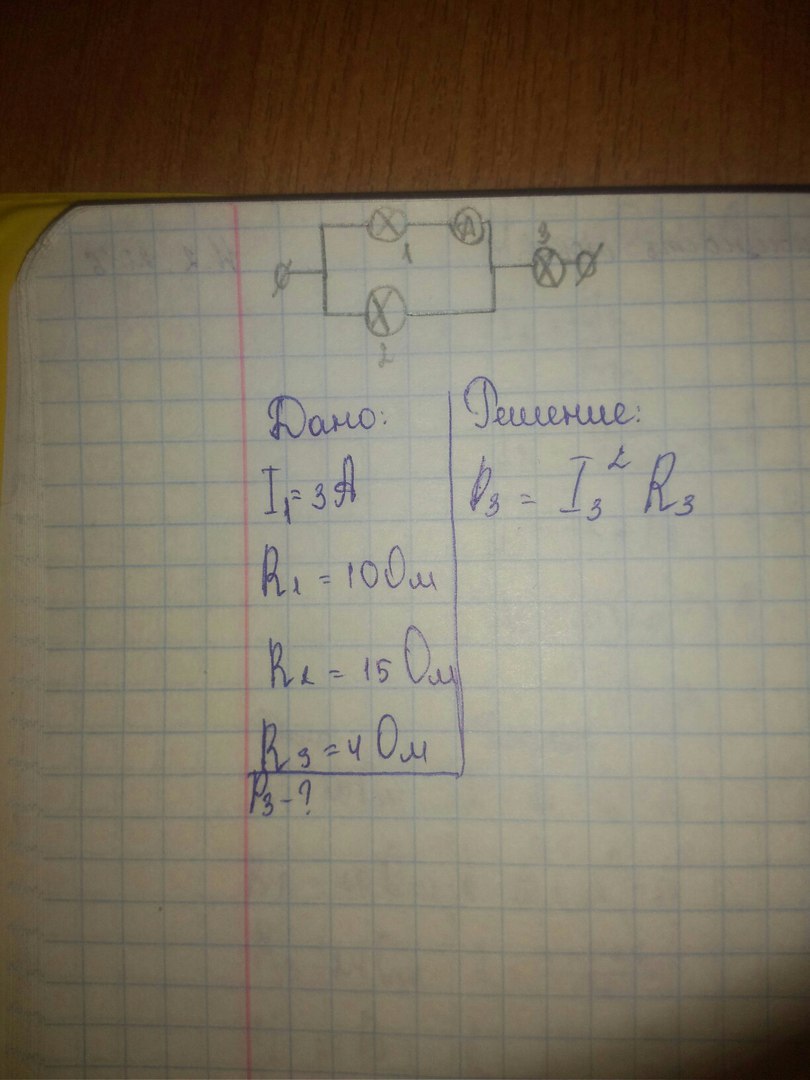 A
3
1
2
Дано:
I₁=3A
R₁ = 10 Ом
R₂ = 15 Ом
R₃ = 4 Ом
P₃ - ?
Решение:
P₃ = I₃² R₃